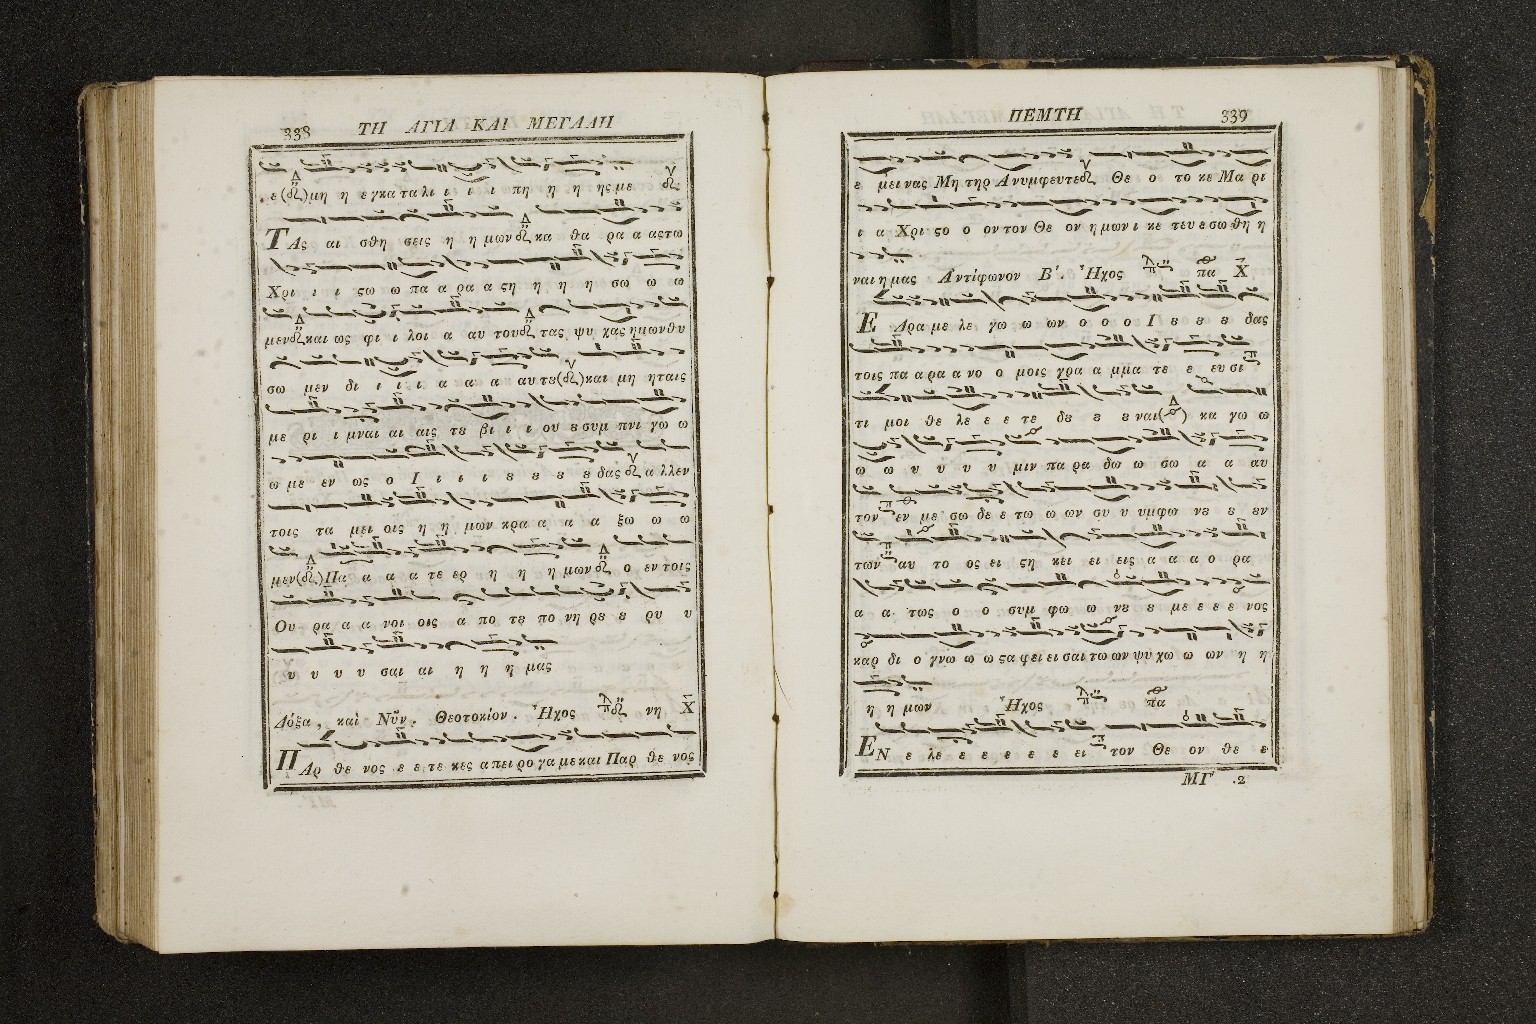 338 ΤΗ ΑΓΙΑ ΚΑΙ ΜΕΓΑΛΗ
ε μη η εγκα τα λι ι ι ι πη η η η ης με
ΤΑς αι σθη σεις η η μων κα θα ρα α ας τω
Χρι ι ι ςω ω πα α ρα α ςη η η η σω ω ω
μεν και ως φι ι λοι α αυ του τας ψυ χας ημων θυ
σω μεν δι ι ι ι α α α αυ τȣ και μη η ταις
με ρι ι μναι αι αις τȣ βι ι ι ου ȣ συμ πνι γω ω
ω με εν ως ο Ι ι ι ι ȣ ȣ ȣ ȣ δας α λλεν
τοις τα μει οις η η μων κρα α α α ξω ω ω
μεν Πα α α α τε ερ η η η μων ο εν τοις
Ου ρα α α νοι οις α πο τȣ πο νη ρȣ ȣ ρυ υ
υ υ υ υ σαι αι η η η μας
Δόξα, καὶ Νῦν. Θεοτοκίον. Ἦχος νη
ΠΑρ θε νος ε ε τε κες α πει ρο γα με και Παρ θε νος
ΠΕΜΤΗ 339
ε μει νας Μη τηρ Ανυμφευτε Θε ο το κε Μα ρι
ι α Χρι ςο ο ον τον Θε ον η μων ι κε τευ ε σω θη η
ναι η μας Ἀντίφωνον Β'. Ἦχος πα
ΕΔρα με λε γω ω ων ο ο ο Ι ȣ ȣ ȣ δας
τοις πα α ρα α νο ο μοις γρα α μμα τε ε ευ σι
τι μοι θε λε ε ε τε δȣ ȣ ȣ ναι κα γω ω
ω ω υ υ υ υ μιν πα ρα δω ω σω α α αυ
τον εν με σω δε ε τω ω ων συ υ υμφω νȣ ȣ ȣν
των αυ το ος ει ςη κει ει εις α α α ο ρα
α α τως ο ο συμ φω ω νȣ ȣ με ε ε ε νος
καρ δι ο γνω ω ω ςα φει ει σαι τω ων ψυ χω ω ων η η
η η μων Ἦχος πα
ΕΝ ε λε ε ε ε ε ε ε ει τον Θε ον θε ε
ΜΓ .2